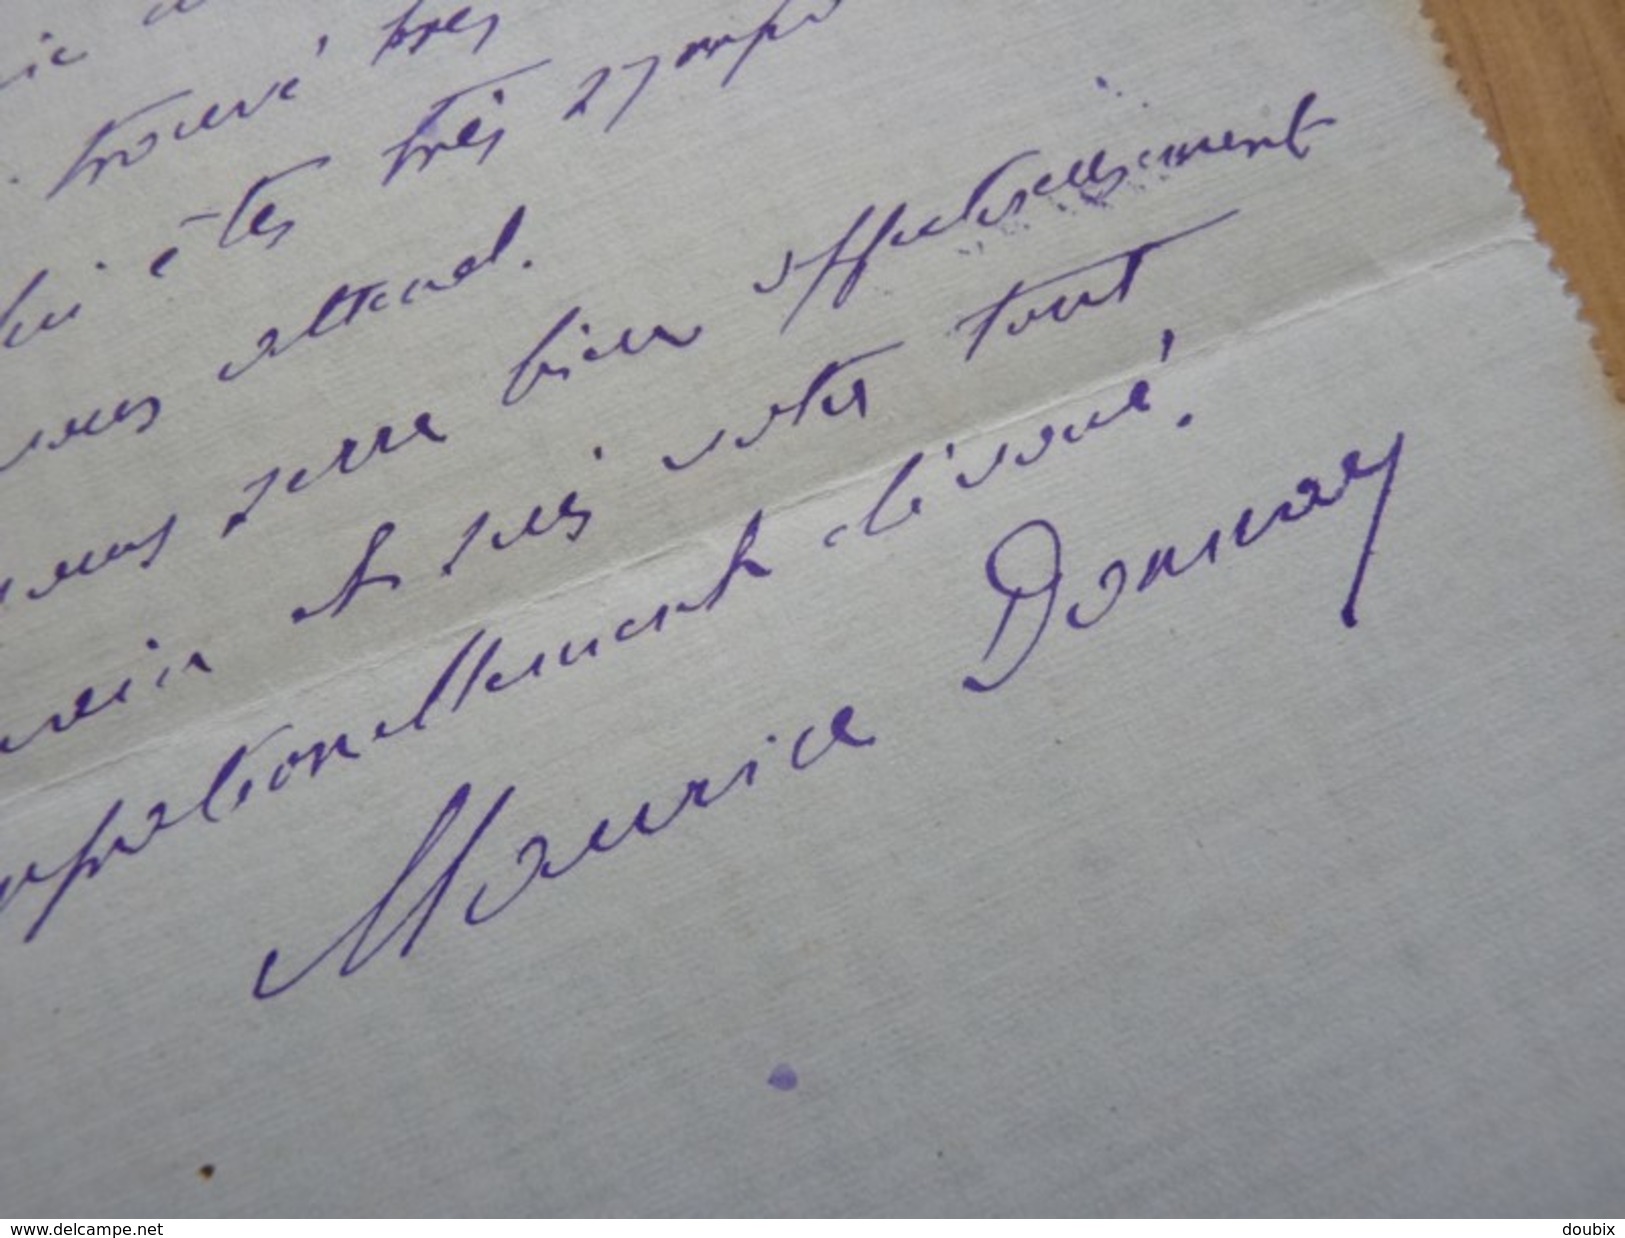 trouvé très
êtes très sympa
vous attend.
vous serre bien affectueusement
main et suis votre tout
sympathionellement dévoué.
Maurice Donnay
www.delcampe.net
doubix